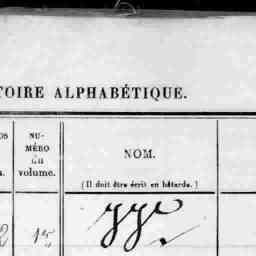 TOIRE ALPHABÉTIQUE.
NU-
MÉRO
du
volume.
NOM.
(Il doit être écrit en bâtarde.)
2 15